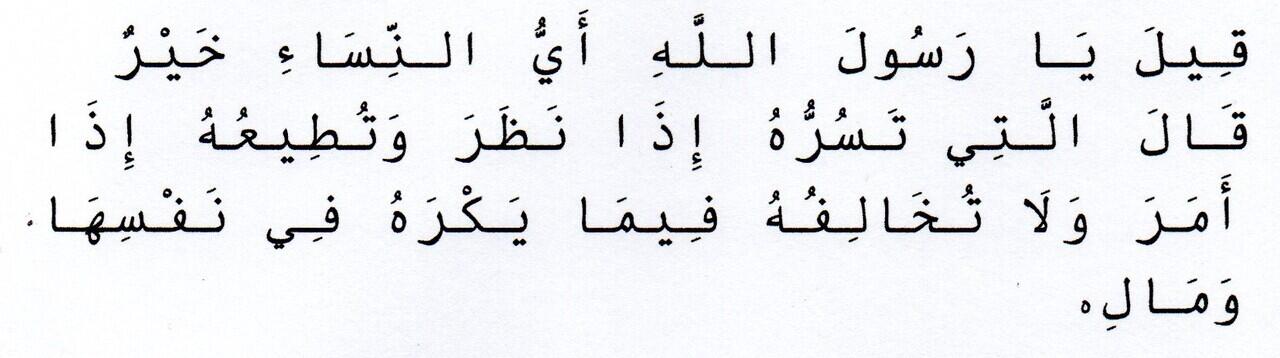 قِيلَ يَا رَسُولَ اللَّهِ أَيُّ النِّسَاءِ خَيْرٌ
قَالَ الَّتِي تَسُرُّهُ إِذَا نَظَرَ وَتُطِيعُهُ إِذَا
أَمَرَ وَلَا تُخَالِفُهُ فِيمَا يَكْرَهُ فِي نَفْسِهَا
وَمَالِهِ